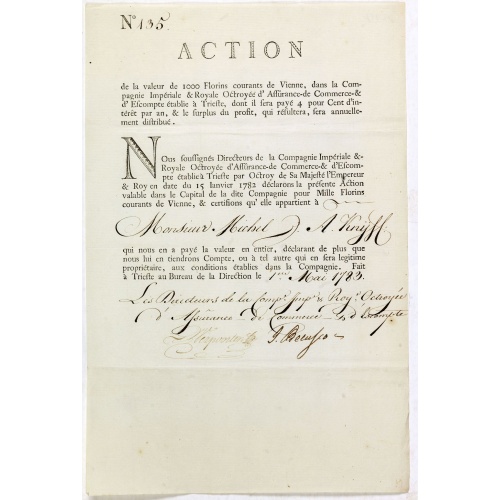 Nº 135.
ACTION
de la valeur de 1000 Florins courants de Vienne, dans la Com-
pagnie Impériale & Royale Octroyée d' Assûrance-de Commerce-&
d' Escompte établie à Trieste, dont il sera payé 4 pour Cent d'in-
térêt par an, & le surplus du profit, qui résultera, sera annuelle-
ment distribué.
Nous soussignés Directeurs de la Compagnie Impériale &-
Royale Octroyée d'Assûrance-de Commerce-& d'Escom-
pte établie à Trieste par Octroy de Sa Majesté l'Empereur
& Roy en date du 15 Janvier 1782 déclarons la présente Action
valable dans le Capital de la dite Compagnie pour Mille Florins
courants de Vienne, & certifions qu' elle appartient à
Monsieur Michel J. A.
qui nous en a payé la valeur en entier, déclarant de plus que
nous lui en tiendrons Compte, ou à tel autre qui en sera legitime
propriétaire, aux conditions établies dans la Compagnie. Fait
à Trieste au Bureau de la Direction le 1er Mai 1783.
Les Directeurs de la Compe. Imp. & Roy. Octroyée
d'Assûrance de Commerce & d'Escompte